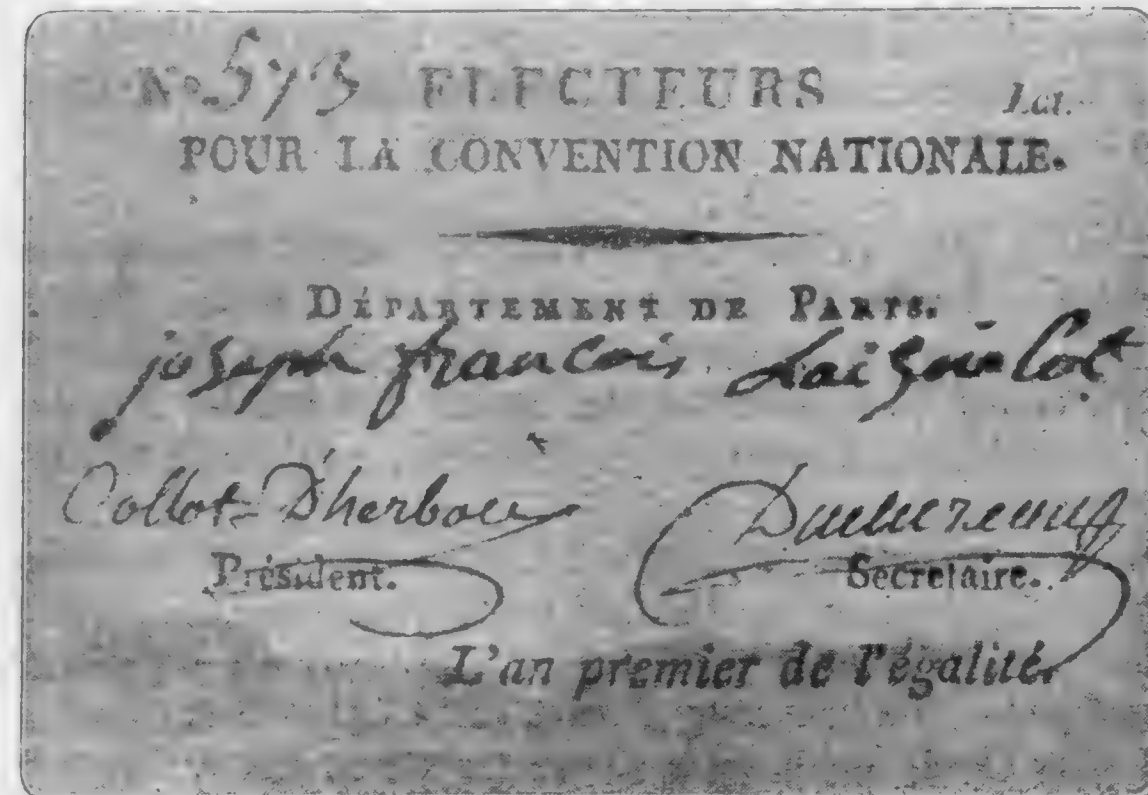 No. 573 ELECTEURS
POUR LA CONVENTION NATIONALE.
DÉPARTEMENT DE PARIS.
joseph francois Laignelot
Collot-D'herbois
Président.
Secrétaire.
L'an premier de l'égalité.